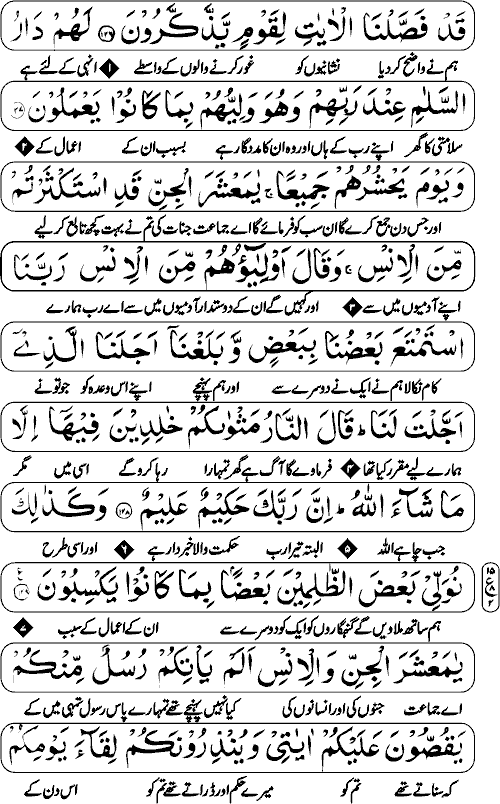 قَدْ فَصَّلْنَا الْاٰيٰتِ لِقَوْمٍ يَّذَّكَّرُوْنَ ۝۱۲۶ لَهُمْ دَارُ
ہم نے واضح کر دیا نشانیوں کو غور کرنے والوں کے واسطے ۱ انہی کے لئے ہے
السَّلٰمِ عِنْدَ رَبِّهِمْ وَهُوَ وَلِيُّهُمْ بِمَا كَانُوْا يَعْمَلُوْنَ ۝۱۲۷
سلامتی کا گھر اپنے رب کے ہاں اور وہ ان کا مددگار ہے بسبب ان کے اعمال کے ۲
وَيَوْمَ يَحْشُرُهُمْ جَمِيْعًا ۚ يٰمَعْشَرَ الْجِنِّ قَدِ اسْتَكْثَرْتُمْ
اور جس دن جمع کرے گا ان سب کو فرمائے گا اے جماعت جنات کی تم نے بہت کچھ تابع کر لیے
مِّنَ الْاِنْسِ ۚ وَقَالَ اَوْلِيٰٓؤُهُمْ مِّنَ الْاِنْسِ رَبَّنَا
اپنے آدمیوں میں سے ۳ اور کہیں گے ان کے دوستدار آدمیوں میں سے اے رب ہمارے
اسْتَمْتَعَ بَعْضُنَا بِبَعْضٍ وَّبَلَغْنَآ اَجَلَنَا الَّذِيْٓ
کام نکالا ہم نے ایک نے دوسرے سے اور ہم پہنچے اپنے اس وعدہ کو جو تو نے
اَجَّلْتَ لَنَا ؕ قَالَ النَّارُ مَثْوٰىكُمْ خٰلِدِيْنَ فِيْهَآ اِلَّا
ہمارے لیے مقرر کیا تھا ۴ فرماوے گا آگ ہے گھر تمہارا رہا کرو گے اسی میں مگر
مَا شَآءَ اللّٰهُ ؕ اِنَّ رَبَّكَ حَكِيْمٌ عَلِيْمٌ ۝۱۲۸ وَكَذٰلِكَ
جب چاہے اللہ ۵ البتہ تیرا رب حکمت والا خبردار ہے ۶ اور اسی طرح
نُوَلِّيْ بَعْضَ الظّٰلِمِيْنَ بَعْضًۢا بِمَا كَانُوْا يَكْسِبُوْنَ ۝۱۲۹
ہم ساتھ ملا دیں گے گنہگاروں کو ایک کو دوسرے سے ان کے اعمال کے سبب ۷
يٰمَعْشَرَ الْجِنِّ وَالْاِنْسِ اَلَمْ يَاْتِكُمْ رُسُلٌ مِّنْكُمْ
اے جماعت جنوں کی اور انسانوں کی کیا نہیں پہنچے تھے تمہارے پاس رسول تمہی میں کے
يَقُصُّوْنَ عَلَيْكُمْ اٰيٰتِيْ وَيُنْذِرُوْنَكُمْ لِقَآءَ يَوْمِكُمْ
کہ سناتے تھے تم کو میرے حکم اور ڈراتے تھے تم کو اس دن کے